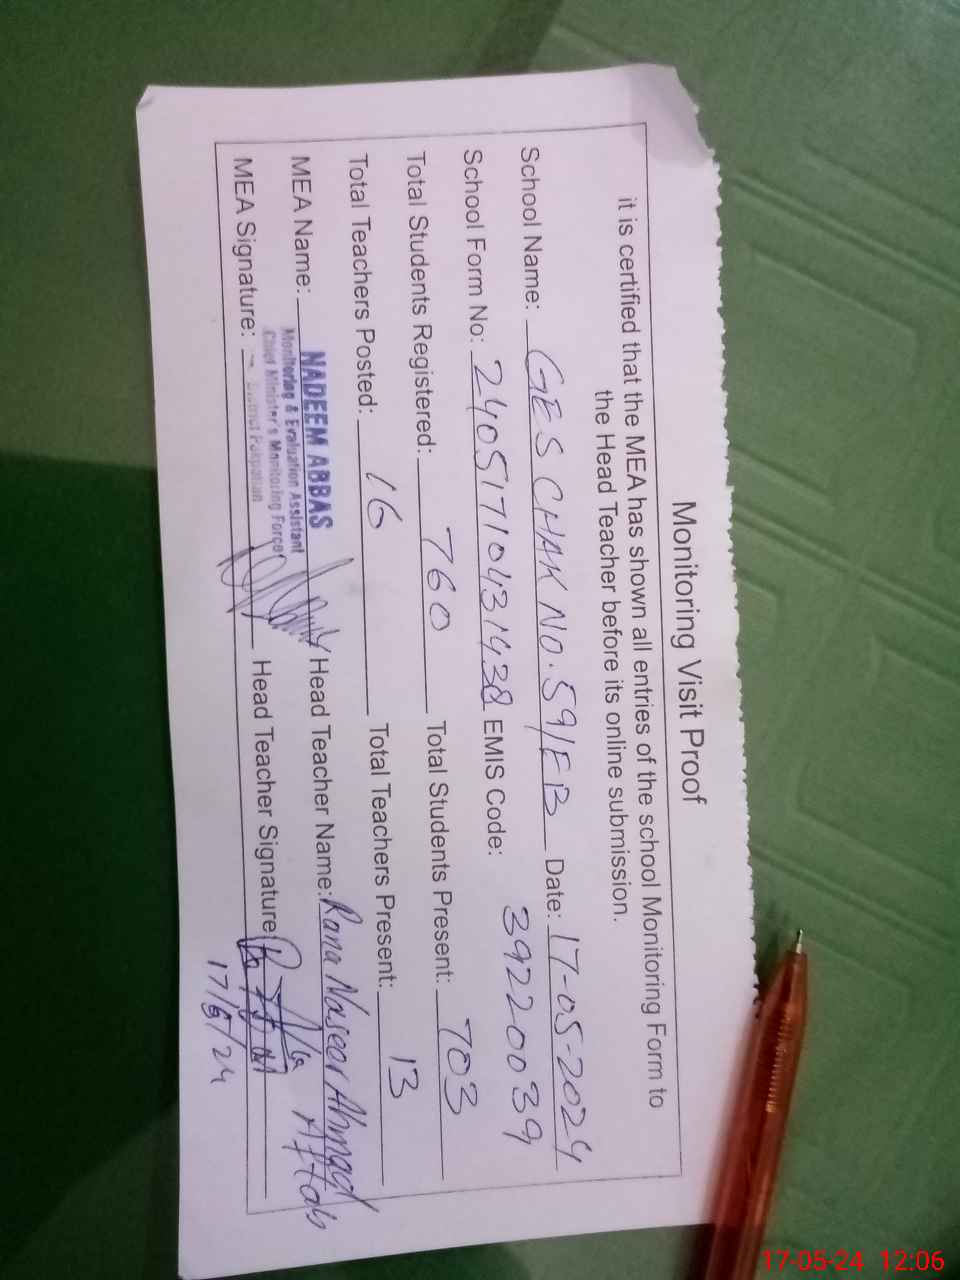 Monitoring Visit Proof
it is certified that the MEA has shown all entries of the school Monitoring Form to
the Head Teacher before its online submission.
School Name: GES CHAK NO. 59/EB Date: 17-05-2024
School Form No: 24051710431438 EMIS Code: 39220039
Total Students Registered: 760 Total Students Present: 703
Total Teachers Posted: 16 Total Teachers Present: 13
MEA Name: NADEEM ABBAS Head Teacher Name: Rana Naseer Ahmad Aftab
Monitoring & Evaluation Assistant
Chief Minister's Monitoring Force
District Pakpattan
MEA Signature: Head Teacher Signature
17/5/24
17-05-24 12:06